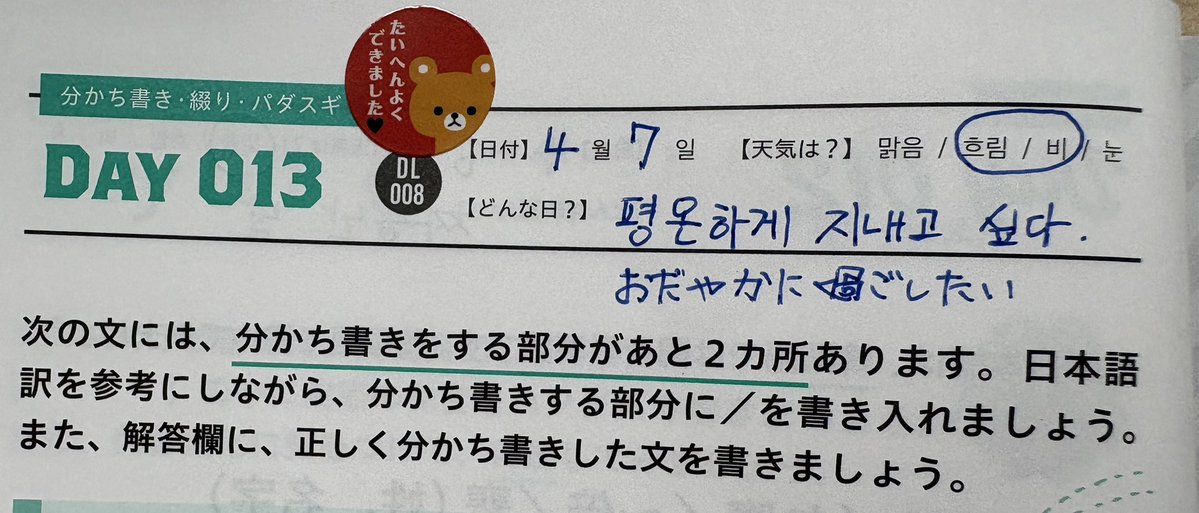 たいへんよく
できました♥
分かち書き・綴り・パダスギ
DAY 013
DL
008
【日付】 4 月 7 日 【天気は？】 맑음 / 흐림 / 비 / 눈
【どんな日？】 평온하게 지내고 싶다.
おだやかに過ごしたい
次の文には、分かち書きをする部分があと２カ所あります。日本語
訳を参考にしながら、分かち書きする部分に／を書き入れましょう。
また、解答欄に、正しく分かち書きした文を書きましょう。